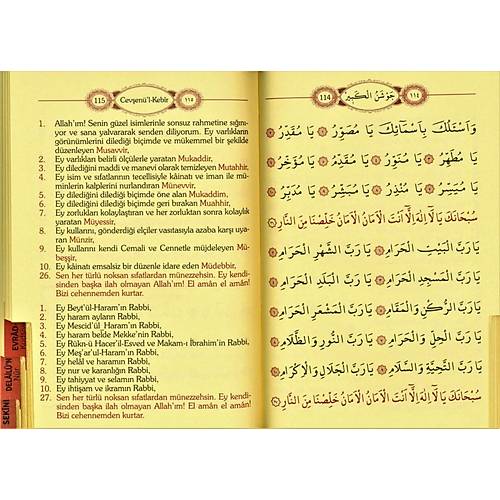 115 Cevşenü'l-Kebîr ١١٥
1. Allah'ım! Senin güzel isimlerinle sonsuz rahmetine sığını-
yor ve sana yalvararak senden diliyorum. Ey varlıkların
görünümlerini dilediği biçimde ve mükemmel bir şekilde
düzenleyen Musavvir,
2. Ey varlıkları belirli ölçülerle yaratan Mukaddir,
3. Ey dilediğini maddi ve manevi olarak temizleyen Mutahhir,
4. Ey isim ve sıfatlarının tecellisiyle kâinatı ve iman ile mü-
minlerin kalplerini nurlandıran Münevvir,
5. Ey dilediğini dilediği biçimde öne alan Mukaddim,
6. Ey dilediğini dilediği biçimde geri bırakan Muahhir,
7. Ey zorlukları kolaylaştıran ve her zorluktan sonra kolaylık
yaratan Müyessir,
8. Ey kullarını, gönderdiği elçiler vasıtasıyla azaba karşı uya-
ran Münzir,
9. Ey kullarını kendi Cemali ve Cennetle müjdeleyen Mü-
beşşir,
10. Ey kâinatı emsalsiz bir düzenle idare eden Müdebbir,
26. Sen her türlü noksan sıfatlardan münezzehsin. Ey kendi-
sinden başka ilah olmayan Allah'ım! El amân el amân!
Bizi cehennemden kurtar.
1. Ey Beyt'ül-Haram'ın Rabbi,
2. Ey haram ayların Rabbi,
3. Ey Mescid'ül_Haram'ın Rabbi,
4. Ey haram belde Mekke'nin Rabbi,
5. Ey Rükn-ü Hacer'il-Esved ve Makam-ı İbrahim'in Rabbi,
6. Ey Meş'ar'ul-Haram'ın Rabbi,
7. Ey helâl ve haramın Rabbi,
8. Ey nur ve karanlığın Rabbi,
9. Ey tahiyyat ve selamın Rabbi,
10. Ey ihtişam ve ikramın Rabbi,
27. Sen her türlü noksan sıfatlardan münezzehsin. Ey kendi-
sinden başka ilah olmayan Allah'ım! El amân el amân!
Bizi cehennemden kurtar.
114 جَوْشَنُ الْكَبِيرِ ١١٤
وَاَسْئَلُكَ بِاَسْمَائِكَ يَا مُصَوِّرُ يَا مُقَدِّرُ
يَا مُطَهِّرُ يَا مُنَوِّرُ يَا مُقَدِّمُ يَا مُؤَخِّرُ
يَا مُيَسِّرُ يَا مُنْذِرُ يَا مُبَشِّرُ يَا مُدَبِّرُ
سُبْحَانَكَ يَا لَا اِلٰهَ اِلَّا اَنْتَ الْاَمَانُ الْاَمَانُ خَلِّصْنَا مِنَ النَّارِ
يَا رَبَّ الْبَيْتِ الْحَرَامِ يَا رَبَّ الشَّهْرِ الْحَرَامِ
يَا رَبَّ الْمَسْجِدِ الْحَرَامِ يَا رَبَّ الْبَلَدِ الْحَرَامِ
يَا رَبَّ الرُّكْنِ وَالْمَقَامِ يَا رَبَّ الْمَشْعَرِ الْحَرَامِ
يَا رَبَّ الْحِلِّ وَالْحَرَامِ يَا رَبَّ النُّورِ وَالظَّلَامِ
يَا رَبَّ التَّحِيَّةِ وَالسَّلَامِ يَا رَبَّ الْجَلَالِ وَالْاِكْرَامِ
سُبْحَانَكَ يَا لَا اِلٰهَ اِلَّا اَنْتَ الْاَمَانُ الْاَمَانُ خَلِّصْنَا مِنَ النَّارِ
SEKİNE
DELÂİLÜ'N
EVRÂD